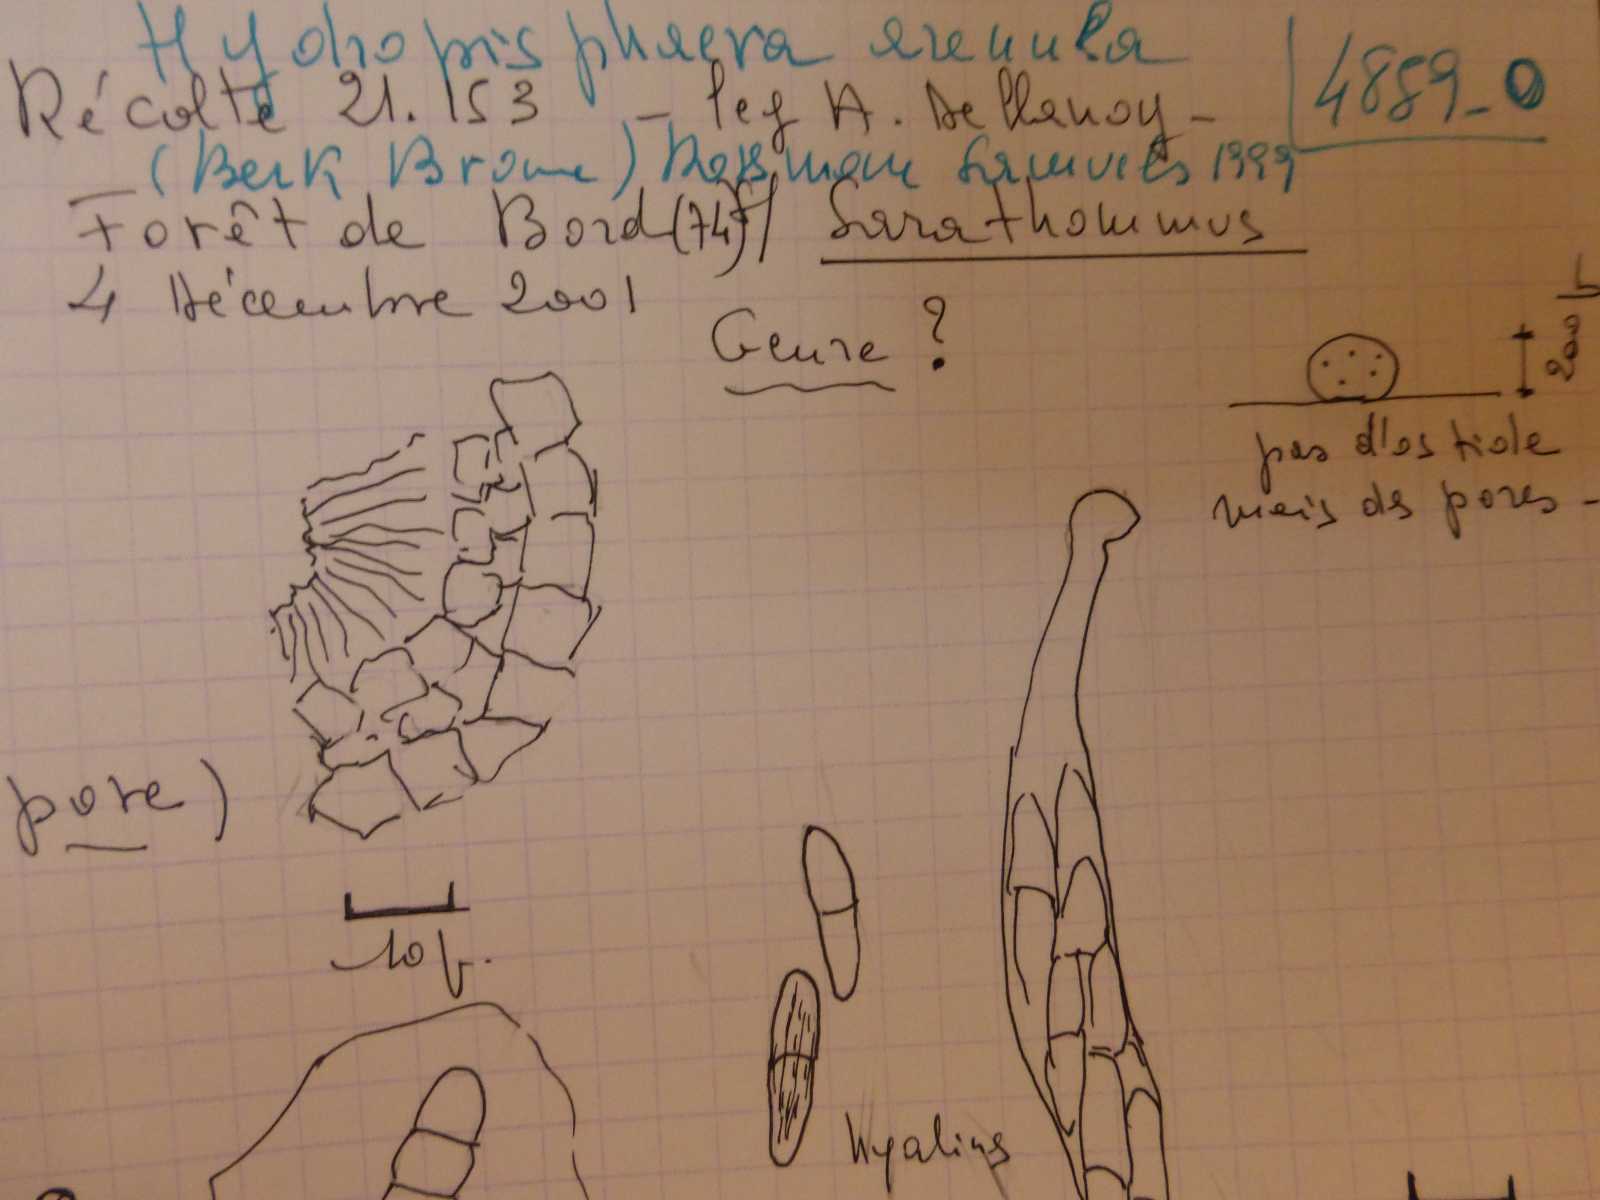 Hydropisphaera arenula
Récolte 21.153 - leg A. Dellanoy -
4889_0
(Berk Brome) Rossman Samuels 1999
Forêt de Bord (74) / Sarothamnus
4 Décembre 2001
Genre ?
200 µ
pas d'ostiole
mais des pores -
pore)
10 µ.
hyalins